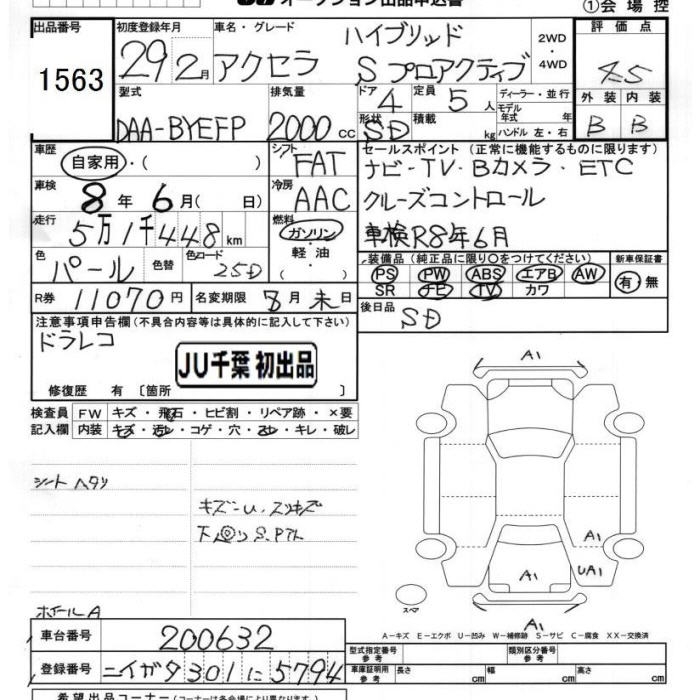 オークション出品申込書
①会場控
出品番号 初度登録年月 車名・グレード 評価点
1563
29年2月 アクセラ ハイブリッド S プロアクティブ 2WD・4WD 4.5
型式 排気量 ドア 定員 ディーラー・並行 外装 内装
DAA-BYEFP 2000cc 4 5人 モデル年式 年 B B
形状 SD 積載 kg ハンドル 左・右
車歴 自家用・( ) シフト FAT
セールスポイント(正常に機能するものに限ります)
ナビ・TV・Bカメラ・ETC
クルーズコントロール
車検R8年6月
車検 8年6月( 日) 冷房 AAC
走行 5万1千448km 燃料 ガソリン・軽油・( )
色 パール 色替 色コード 25D
装備品(純正品に限り○をつけてください) 新車保証書
PS PW ABS エアB AW 有・無
SR ナビ TV カワ
R券 11070円 名変期限 8月末日
後日品 SD
注意事項申告欄(不具合内容等は具体的に記入して下さい)
ドラレコ
JU千葉 初出品
修復歴 有〔箇所 〕
検査員記入欄 FW キズ・飛石・ヒビ割・リペア跡・×要
内装 キズ・汚レ・コゲ・穴・スレ・キレ・破レ
シート ヘタリ
キズ-U、スリキズ
ホイールA
A1
A1
UA1
A1
A1
スペア
A-キズ E-エクボ U-凹み W-補修跡 S-サビ C-腐食 XX-交換済
車台番号 200632
登録番号 ニイガタ301に5794
型式指定番号 参考 類別区分番号 参考
車庫証明用 参考 長さ cm 幅 cm 高さ cm
希望出品コーナー(コーナーは各会場により異なります)